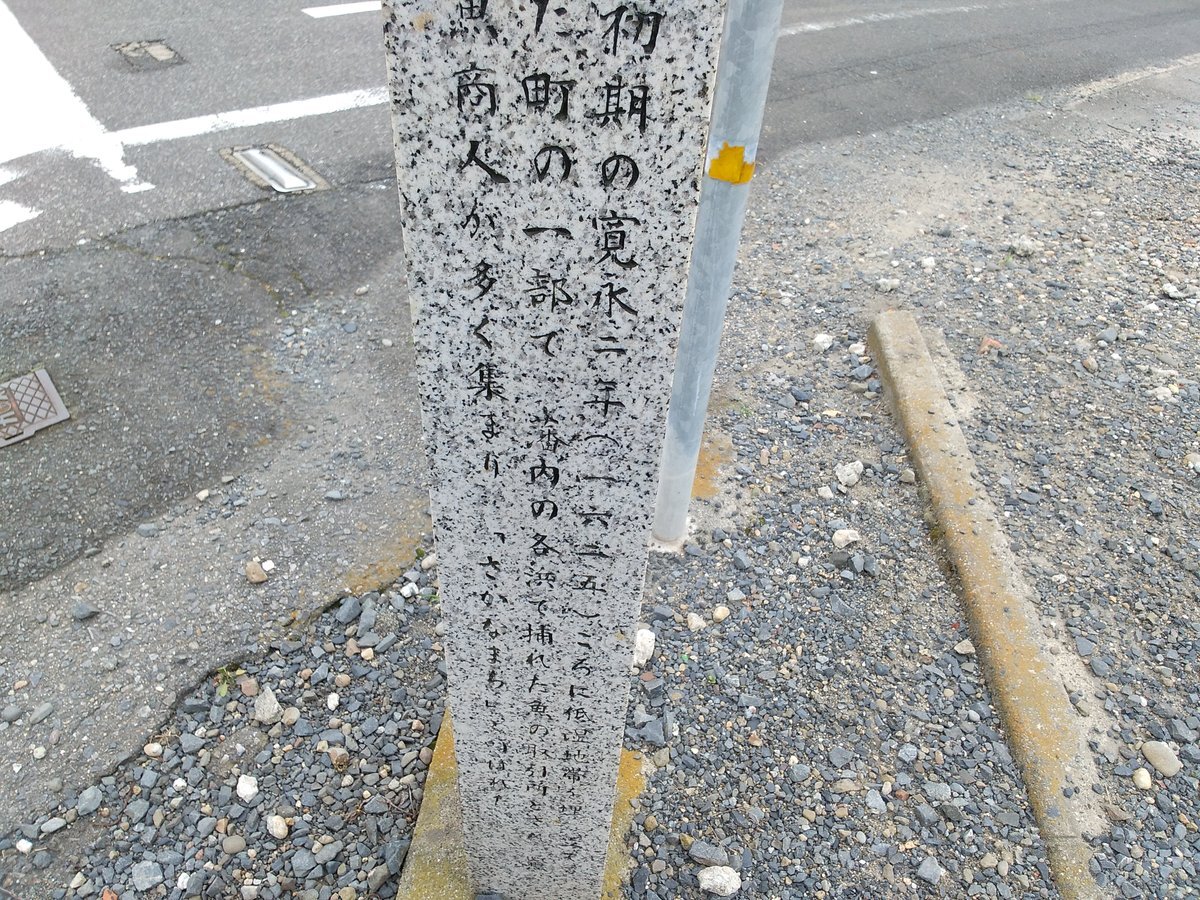 初期の寛永二年(一六二五)ごろに低湿地帯を埋立て
た町の一部で 藩内の各浜で捕れた魚の取引問を
魚商人が多く集まり「さかなまち